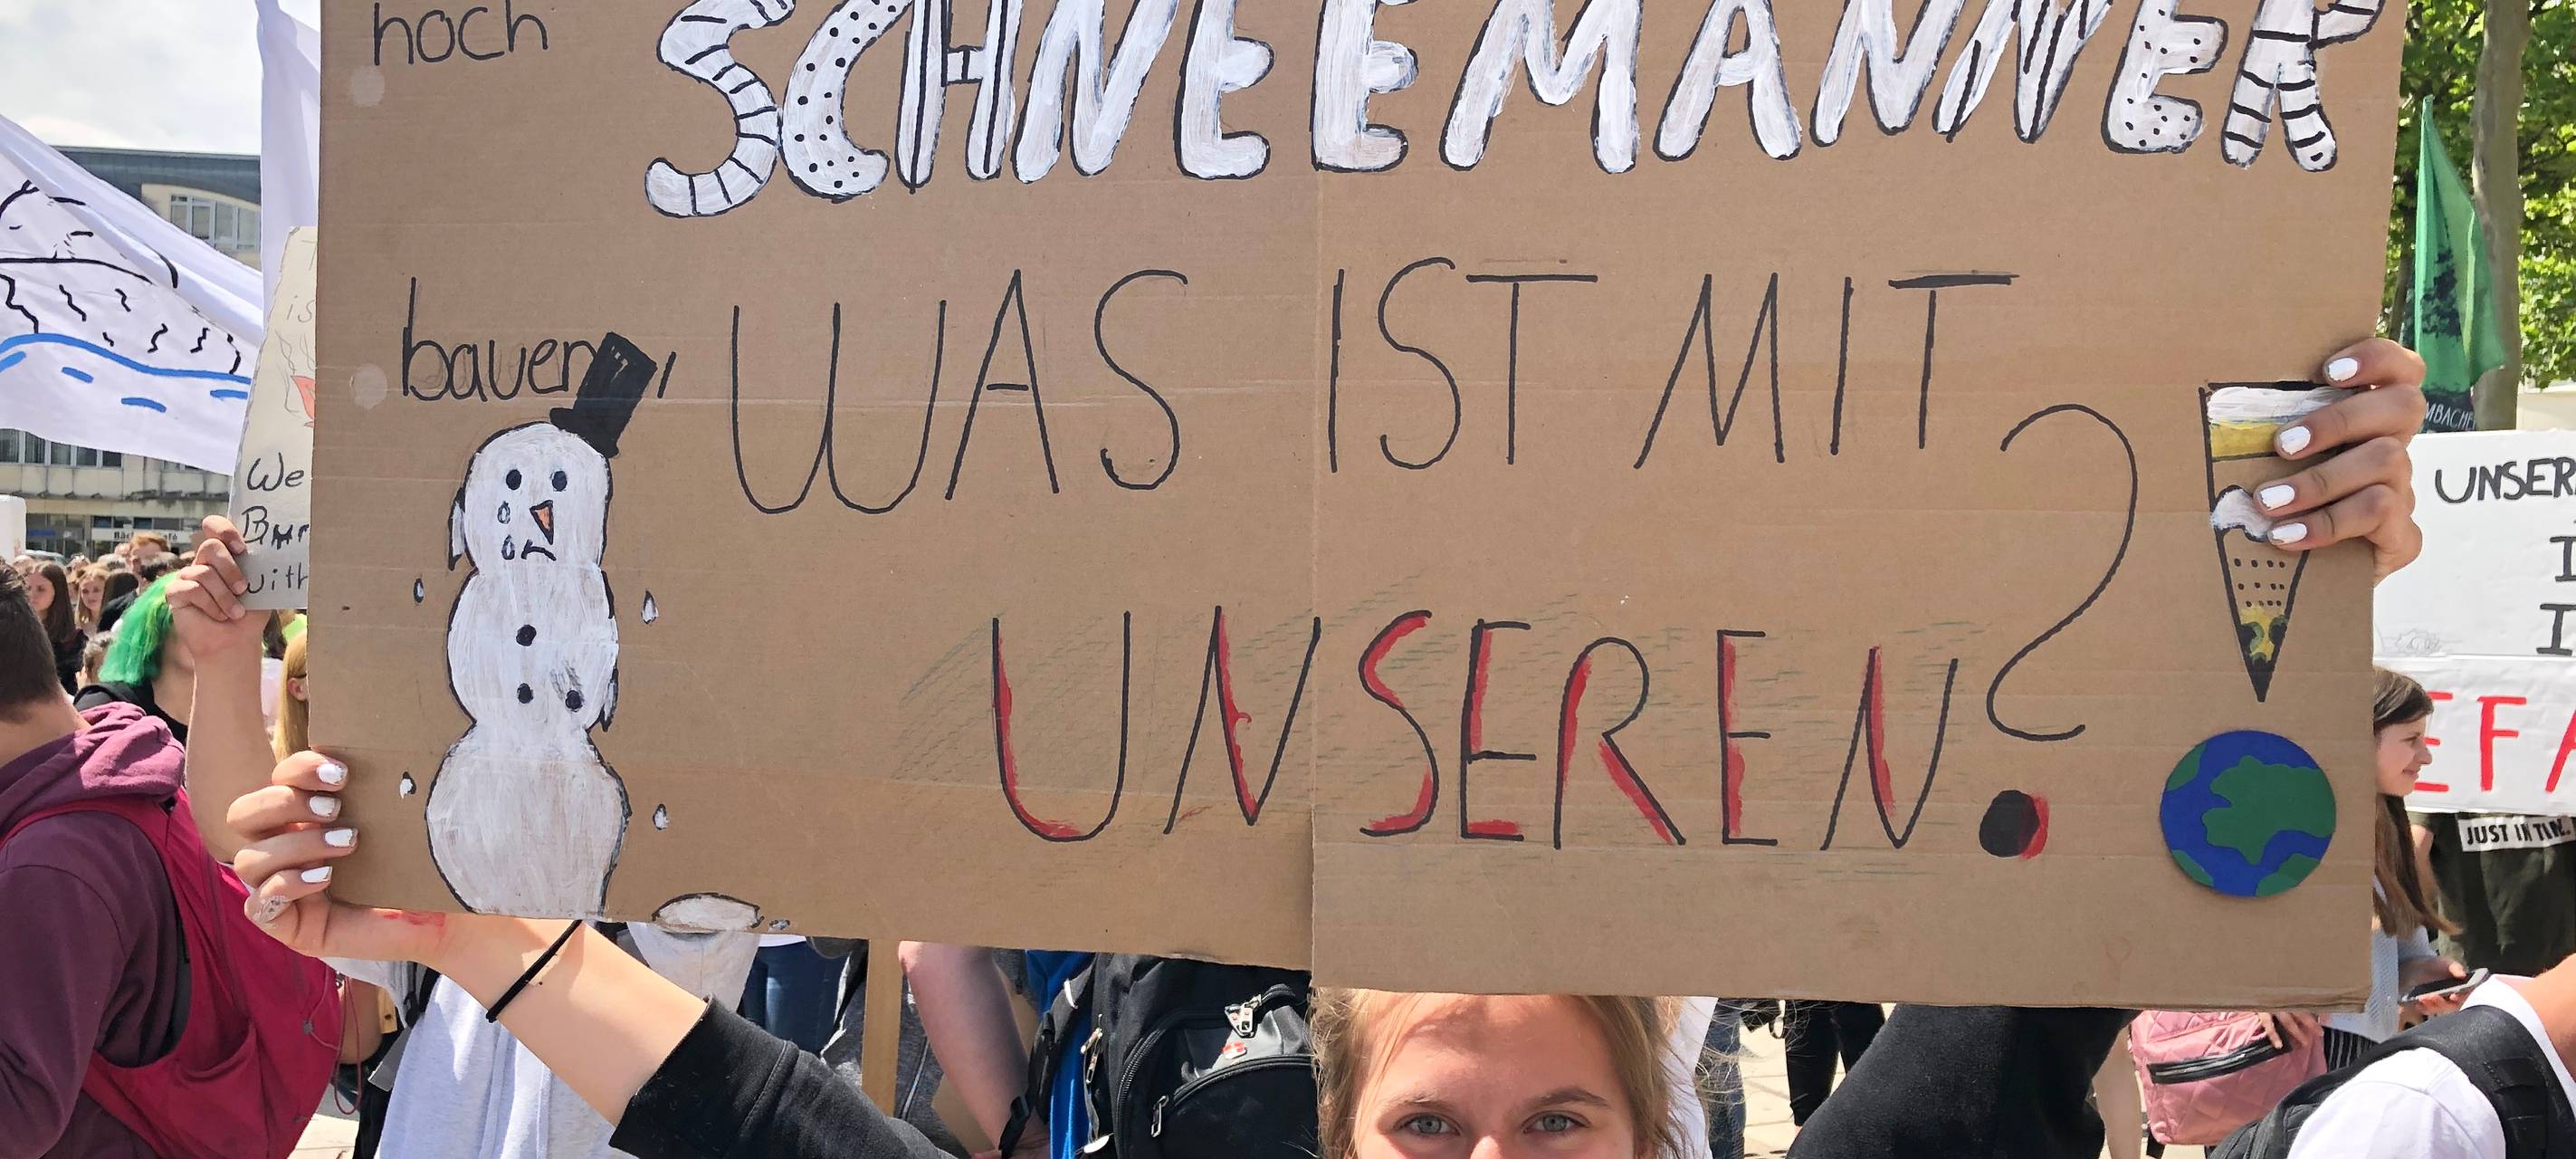 noch SCHNEEMÄNNER
bauen, WAS IST MIT
UNSEREN?
is
We
with
UNSER
I
I
EFA
JUST IN